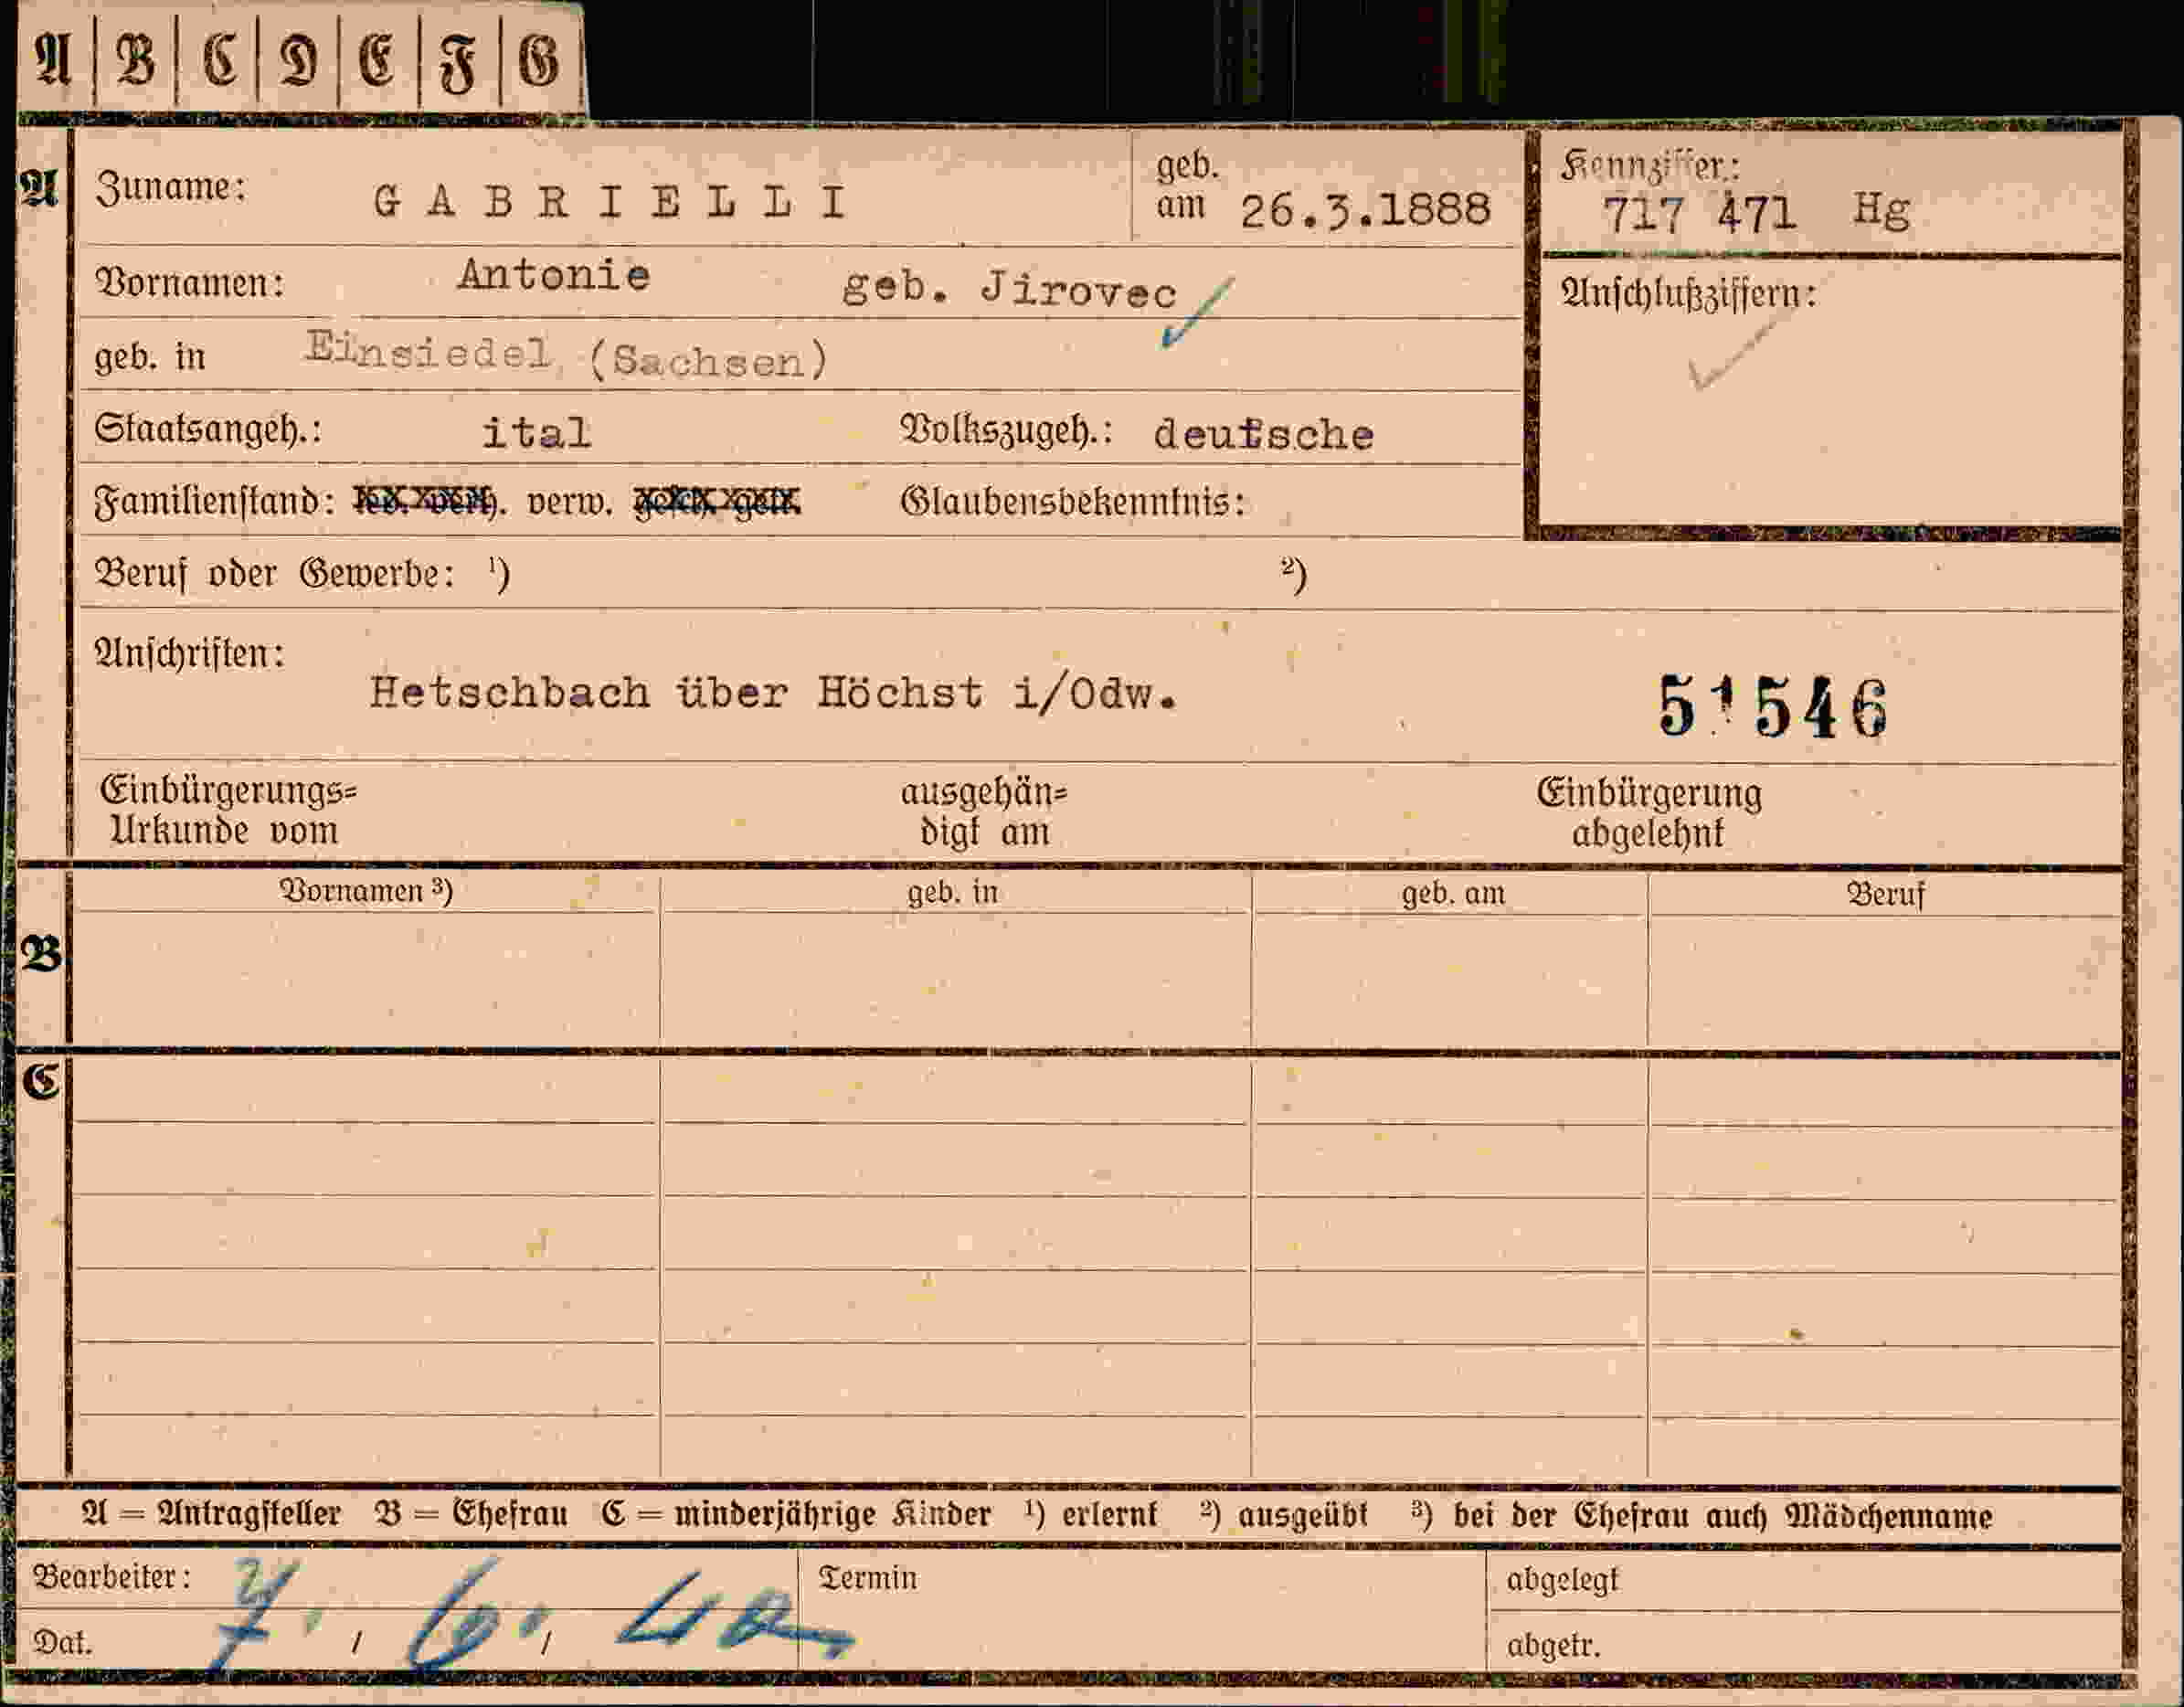 A B C D E F G
A Zuname: GABRIELLI geb. am 26.3.1888 Kennziffer: 717 471 Hg
Vornamen: Antonie geb. Jirovec Anschlußziffern:
geb. in Einsiedel (Sachsen)
Staatsangeh.: ital Volkszugeh.: deutsche
Familienstand: led. verh. verw. gesch. getr. Glaubensbekenntnis:
Beruf oder Gewerbe: ¹) ²)
Anschriften:
Hetschbach über Höchst i/Odw. 51546
Einbürgerungs= ausgehän= Einbürgerung
Urkunde vom digt am abgelehnt
Vornamen ³) geb. in geb. am Beruf
B
C
A = Antragsteller B = Ehefrau C = minderjährige Kinder ¹) erlernt ²) ausgeübt ³) bei der Ehefrau auch Mädchenname
Bearbeiter: Termin abgelegt
Dat. 7. / 6. / 40 abgetr.